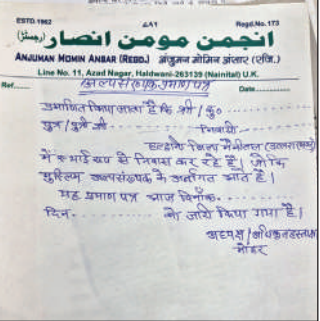 ESTD.1962 ۷۸۶ Regd.No.173
انجمن مومن انصار (رجسٹرڈ)
ANJUMAN MOMIN ANSAR (REGD.) अंजुमन मोमिन अंसार (रजि.)
Line No. 11, Azad Nagar, Haldwani-263139 (Nainital) U.K.
Ref....... Date...........
अल्पसंख्यक प्रमाण पत्र
प्रमाणित किया जाता है कि श्री / कु०
पुत्र / पुत्री श्री निवासी
हल्द्वानी जिला नैनीताल (उत्तराखण्ड)
में स्थाई रूप से निवास कर रहे हैं। जोकि
मुस्लिम अल्पसंख्यक के अर्न्तगत आते हैं।
यह प्रमाण पत्र आज दिनाँक
दिन को जारी किया गया है।
अध्यक्ष /
मोहर